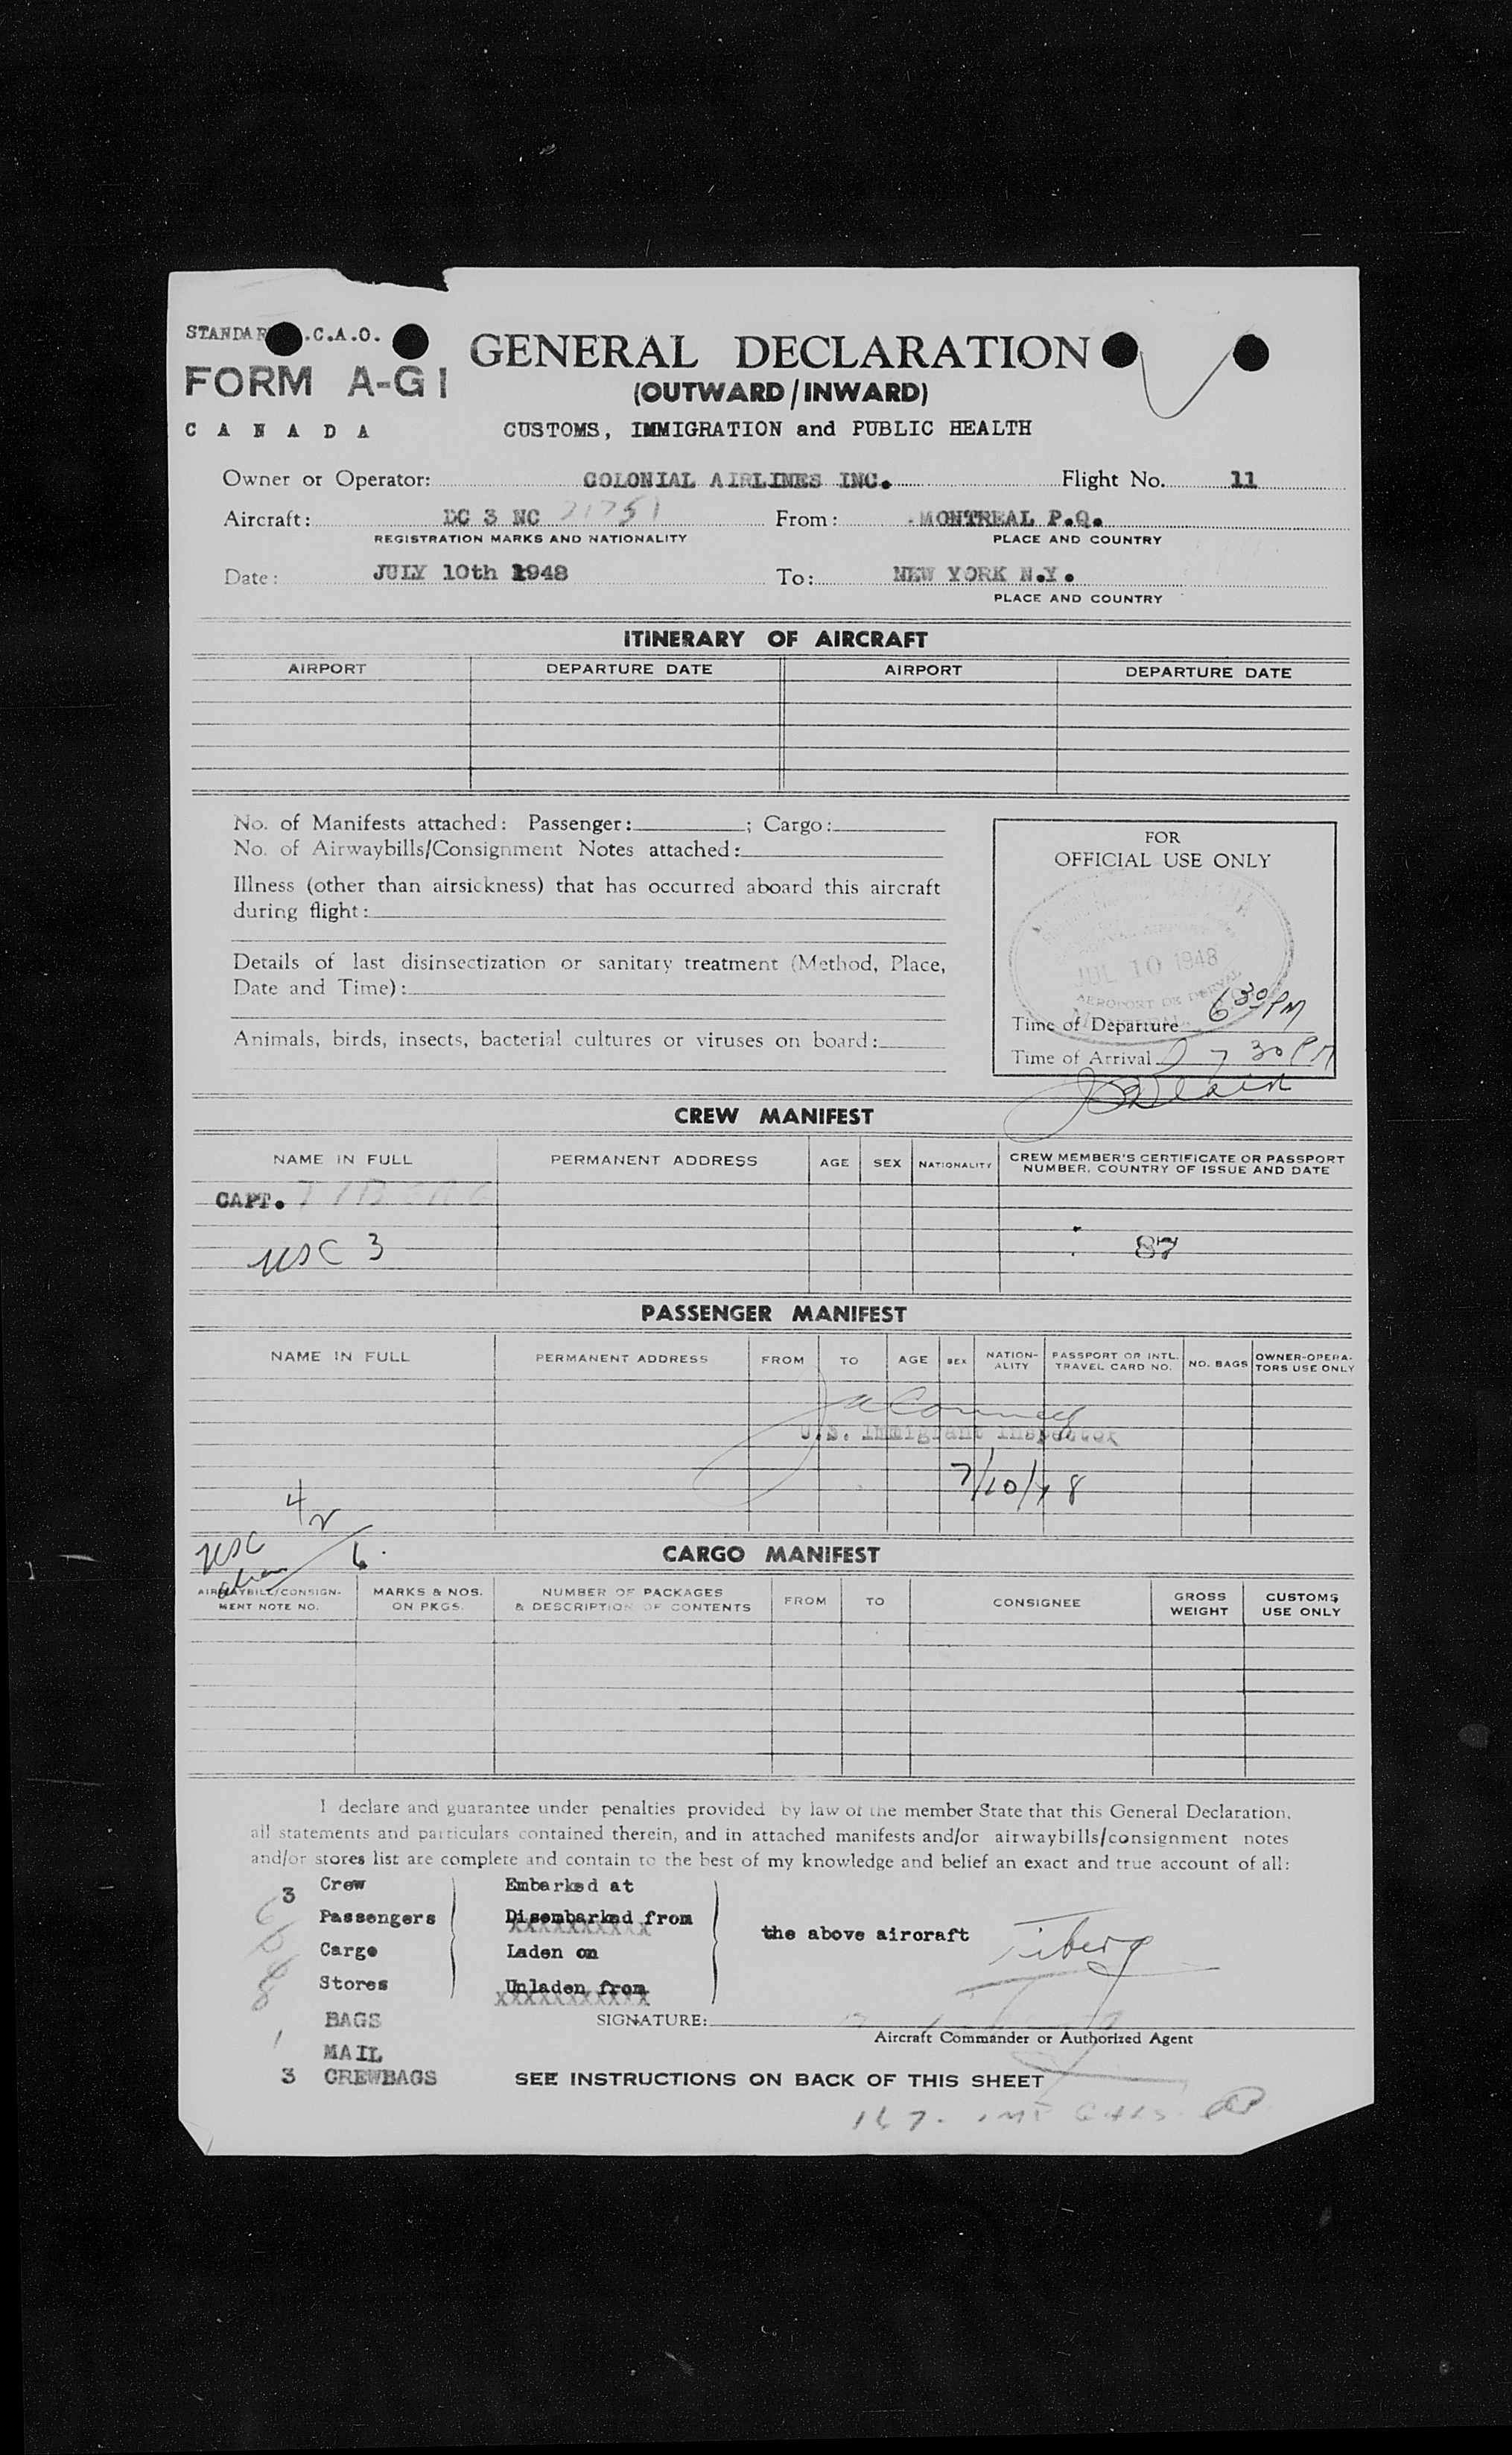 STANDAR .C.A.O.
FORM A-G1
CANADA
GENERAL DECLARATION
(OUTWARD/INWARD)
CUSTOMS, IMMIGRATION and PUBLIC HEALTH
Owner or Operator: COLONIAL AIRLINES INC. Flight No. 11
Aircraft: DC 3 NC 21751 From: MONTREAL P.Q.
REGISTRATION MARKS AND NATIONALITY PLACE AND COUNTRY
Date: JULY 10th 1948 To: NEW YORK N.Y.
PLACE AND COUNTRY
ITINERARY OF AIRCRAFT
AIRPORT DEPARTURE DATE AIRPORT DEPARTURE DATE
No. of Manifests attached: Passenger: ; Cargo:
No. of Airwaybills/Consignment Notes attached:
Illness (other than airsickness) that has occurred aboard this aircraft
during flight:
Details of last disinsectization or sanitary treatment (Method, Place,
Date and Time):
Animals, birds, insects, bacterial cultures or viruses on board:
FOR
OFFICIAL USE ONLY
JUL 10 1948
AEROPORT DE DORVAL
Time of Departure 6 30 PM
Time of Arrival 7 30 PM
CREW MANIFEST
NAME IN FULL PERMANENT ADDRESS AGE SEX NATIONALITY CREW MEMBER'S CERTIFICATE OR PASSPORT
NUMBER, COUNTRY OF ISSUE AND DATE
CAPT. TIBERG
USC 3 87
PASSENGER MANIFEST
NAME IN FULL PERMANENT ADDRESS FROM TO AGE SEX NATION-
ALITY PASSPORT OR INTL.
TRAVEL CARD NO. NO. BAGS OWNER-OPERA-
TORS USE ONLY
U.S. Immigrant Inspector
7/10/48
USC 4
alien 2
6
CARGO MANIFEST
AIRWAYBILL/CONSIGN-
MENT NOTE NO. MARKS & NOS.
ON PKGS. NUMBER OF PACKAGES
& DESCRIPTION OF CONTENTS FROM TO CONSIGNEE GROSS
WEIGHT CUSTOMS
USE ONLY
I declare and guarantee under penalties provided by law of the member State that this General Declaration,
all statements and particulars contained therein, and in attached manifests and/or airwaybills/consignment notes
and/or stores list are complete and contain to the best of my knowledge and belief an exact and true account of all:
3 Crew Embarked at
6 Passengers Disembarked from
Cargo Laden on the above aircraft Tiberg
Stores Unladen from
8 BAGS
SIGNATURE:
Aircraft Commander or Authorized Agent
1 MAIL
3 CREWBAGS
SEE INSTRUCTIONS ON BACK OF THIS SHEET
167. IMP GALS.